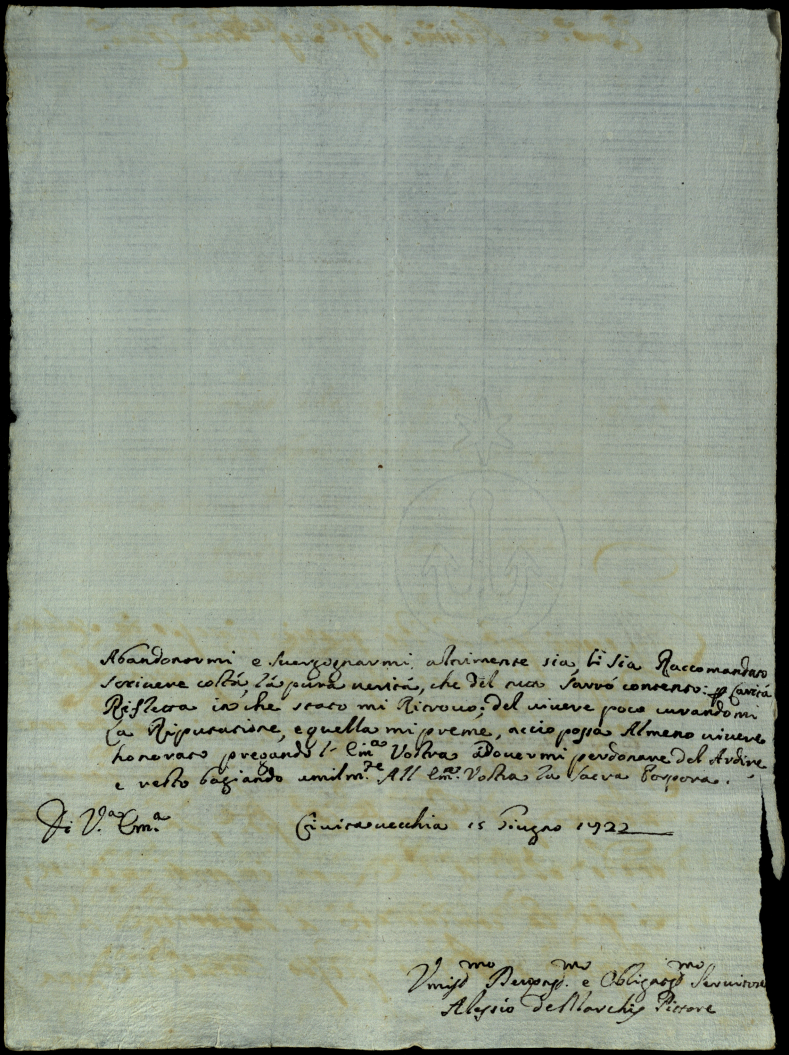 Abandonarmi e svergognarmi, altrimente sia, li sia Raccomandato
scrivere costà, la pura verità, che del tutto sarrò contento: p Carità
Rifletta in che stato mi Ritrovo; del vivere poco curandomi
La Riputatione, e quella mi preme, accio possa Almeno vivere
honorato pregando l' Em.ᵃ Vostra a dovermi perdonare del Ardire
e resto bagiando umilm.ᵗᵉ All Em.ᵃ Vostra la sacra Porpora.
Di V.ᵃ Em.ᵃ Civitavecchia 15 Giugno 1722
Umiss.ᵐᵒ Devotiss.ᵐᵒ e Obligatiss.ᵐᵒ Servitore
Alessio de Marchis Pittore